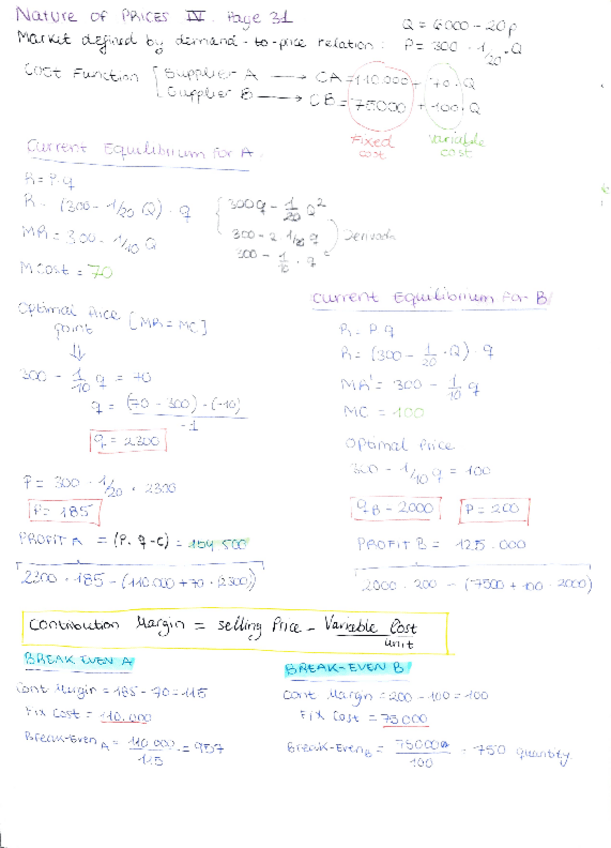 Nature of PRICES IV. Page 31
Q = 6000 - 20p
Market defined by demand-to-price relation: P = 300 - 1/20 · Q
Cost Function { Supplier A → CA = 110.000 + 70 · Q
Supplier B → CB = 75000 + 100 · Q
Fixed cost
Variable cost
Current Equilibrium for A.
R = P · q
R = (300 - 1/20 Q) · q
MR = 300 - 1/10 Q
MCost = 70
300q - 1/20 Q²
300 - 2 · 1/20 q
300 - 1/10 · q
Derivada
Optimal Price point [MR = MC]
⇓
300 - 1/10 q = 70
q = (70 - 300) · (-10)
-1
q = 2300
P = 300 - 1/20 · 2300
P = 185
PROFIT A = (P · q - C) = 154.500
2300 · 185 - (110.000 + 70 · (2300))
Current Equilibrium For B
R = P q
R = (300 - 1/20 · Q) · q
MR' = 300 - 1/10 q
MC = 100
Optimal Price
300 - 1/10 q = 100
qB = 2000
P = 200
PROFIT B = 125.000
2000 · 200 - (7500 + 100 · 2000)
Contribution Margin = selling Price - Variable Cost / unit
BREAK EVEN A
Cont Margin = 185 - 70 = 115
Fix Cost = 110.000
Break-Even A = 110.000 / 115 = 957
BREAK-EVEN B
Cont Margin = 200 - 100 = 100
Fix Cost = 75000
Break-Even B = 75000 / 100 = 750 quantity